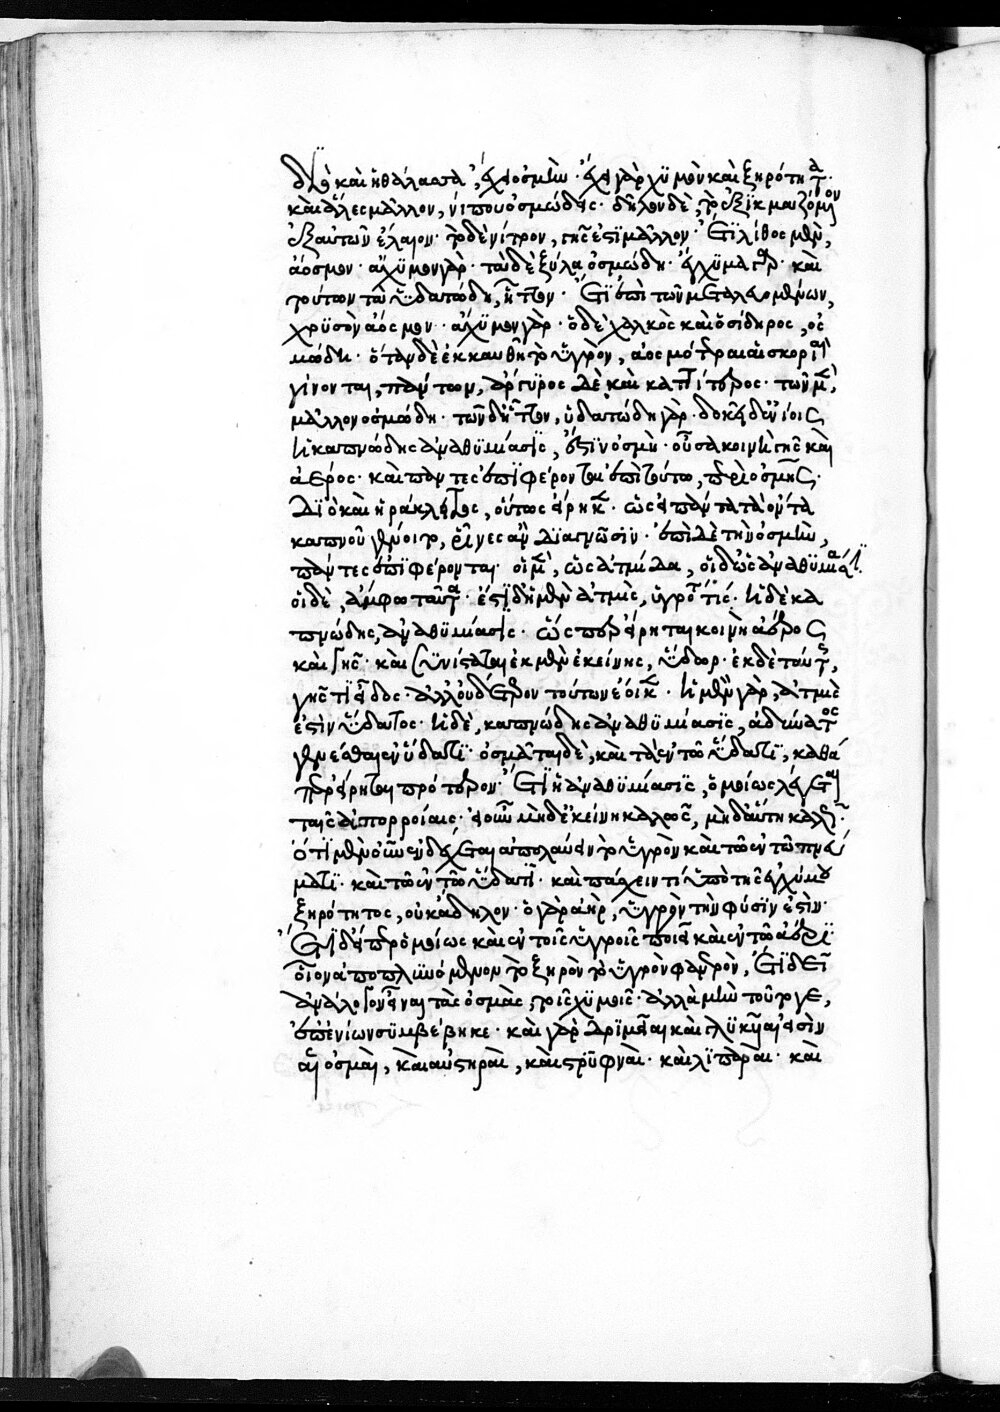 διὸ καὶ ἡ θάλαττα, ἔχει ὀσμήν· ἔχει γὰρ χυμὸν καὶ ξηρότητα·
καὶ ἅλες μᾶλλον, νίτρου ὀσμώδεις· δηλοῖ δὲ, τὸ ἐξικμαζόμενον
ἐξ αὐτῶν ἔλαιον· τὸ δὲ νίτρον, γῆς ἐστὶ μᾶλλον· ἔτι λίθος μὲν,
ἄοσμον· ἄχυμον γάρ· τὰ δὲ ξύλα ὀσμώδη· ἔγχυμα γάρ· καὶ
τούτων τὰ ὑδατώδη, ἧττον· ἔτι ἐπὶ τῶν μεταλλευομένων,
χρυσὸν ἄοσμον· ἄχυμον γάρ· ὁ δὲ χαλκὸς καὶ ὁ σίδηρος, ὀσ
μώδη· ὅταν δὲ ἐκκαυθῇ τὸ ὑγρὸν, ἀοσμότεραι αἱ σκορίαι
γίνονται, πάντων, ἄργυρος δὲ καὶ καττίτερος· τῶν μὲν
μᾶλλον ὀσμώδη· τῶν δ' ἧττον, ὑδατώδη γάρ· δοκεῖ δ' ἐνίοις
ἡ καπνώδης ἀναθυμίασις, ἐστὶν ὀσμή· οὖσα κοινὴ γῆς καὶ
ἀέρος· καὶ πάντες ἐπιφέρονται ἐπὶ τοῦτο, περὶ ὀσμῆς·
διὸ καὶ ἡράκλειτος, οὕτως εἴρηκεν· ὡς εἰ πάντα τὰ ὄντα
καπνοῦ γένοιτο, ῥῖνες ἂν διαγνῶσιν· ἐπὶ δὲ τὴν ὀσμὴν,
πάντες ἐπιφέρονται· οἱ μὲν, ὡς ἀτμίδα, οἱ δ' ὡς ἀναθυμίασιν.
οἱ δὲ, ἄμφω ταῦτα· ἔστι δ' ἡ μὲν ἀτμὶς, ὑγρότης τίς· ἡ δὲ κα
πνώδης ἀναθυμίασις· ὥσπερ εἴρηται κοινὴ ἀέρος
καὶ γῆς· καὶ συνίσταται ἐκ μὲν ἐκείνης, ὕδωρ· ἐκ δὲ ταύτης,
γῆς τι εἶδος· ἀλλ' οὐδέτερον τούτων ἔοικεν· ἡ μὲν γὰρ, ἀτμίς
ἐστὶν ὕδατος· ἡ δὲ, καπνώδης ἀναθυμίασις, ἀδύνατος
γενέσθαι ἐν ὕδατι· ὀσμᾶται δὲ, καὶ τὰ ἐν τῶ ὕδατι, καθά
περ εἴρηται πρότερον· ἔτι ἡ ἀναθυμίασις, ὁμοίως λέγεται
ταῖς ἀπορροίαις· εἰ οὖν μὴ δ' ἐκείνη καλῶς, μηδ' αὕτη καλῶς·
ὅτι μὲν οὖν ἐνδέχεται ἀπολαύειν τὸ ὑγρὸν καὶ τὸ ἐν τῶ πνεύ
ματι· καὶ τὸ ἐν τῶ ὕδατι· καὶ πάσχειν τι ὑπὸ τῆς ἐγχύμου
ξηρότητος, οὐκ ἄδηλον· ὁ γὰρ ἀὴρ, ὑγρὸν τὴν φύσιν ἐστίν·
ἔτι δ' εἴπερ ὁμοίως καὶ ἐν τοῖς ὑγροῖς ποιεῖ καὶ ἐν τῶ ἀέρι
οἷον ἀποπλυνόμενον τὸ ξηρὸν τὸ ὑγρὸν φανερὸν, ἔτι δεῖ
ἀνάλογον εἶναι τὰς ὀσμὰς, τοῖς χυμοῖς· ἀλλὰ μὴν τοῦτό γε,
ἐπ' ἐνίων συμβέβηκε· καὶ γὰρ δριμεῖαι καὶ γλυκεῖαι εἰσὶν
αἱ ὀσμαὶ, καὶ αὐστηραὶ, καὶ στρυφναὶ· καὶ λιπαραὶ· καὶ